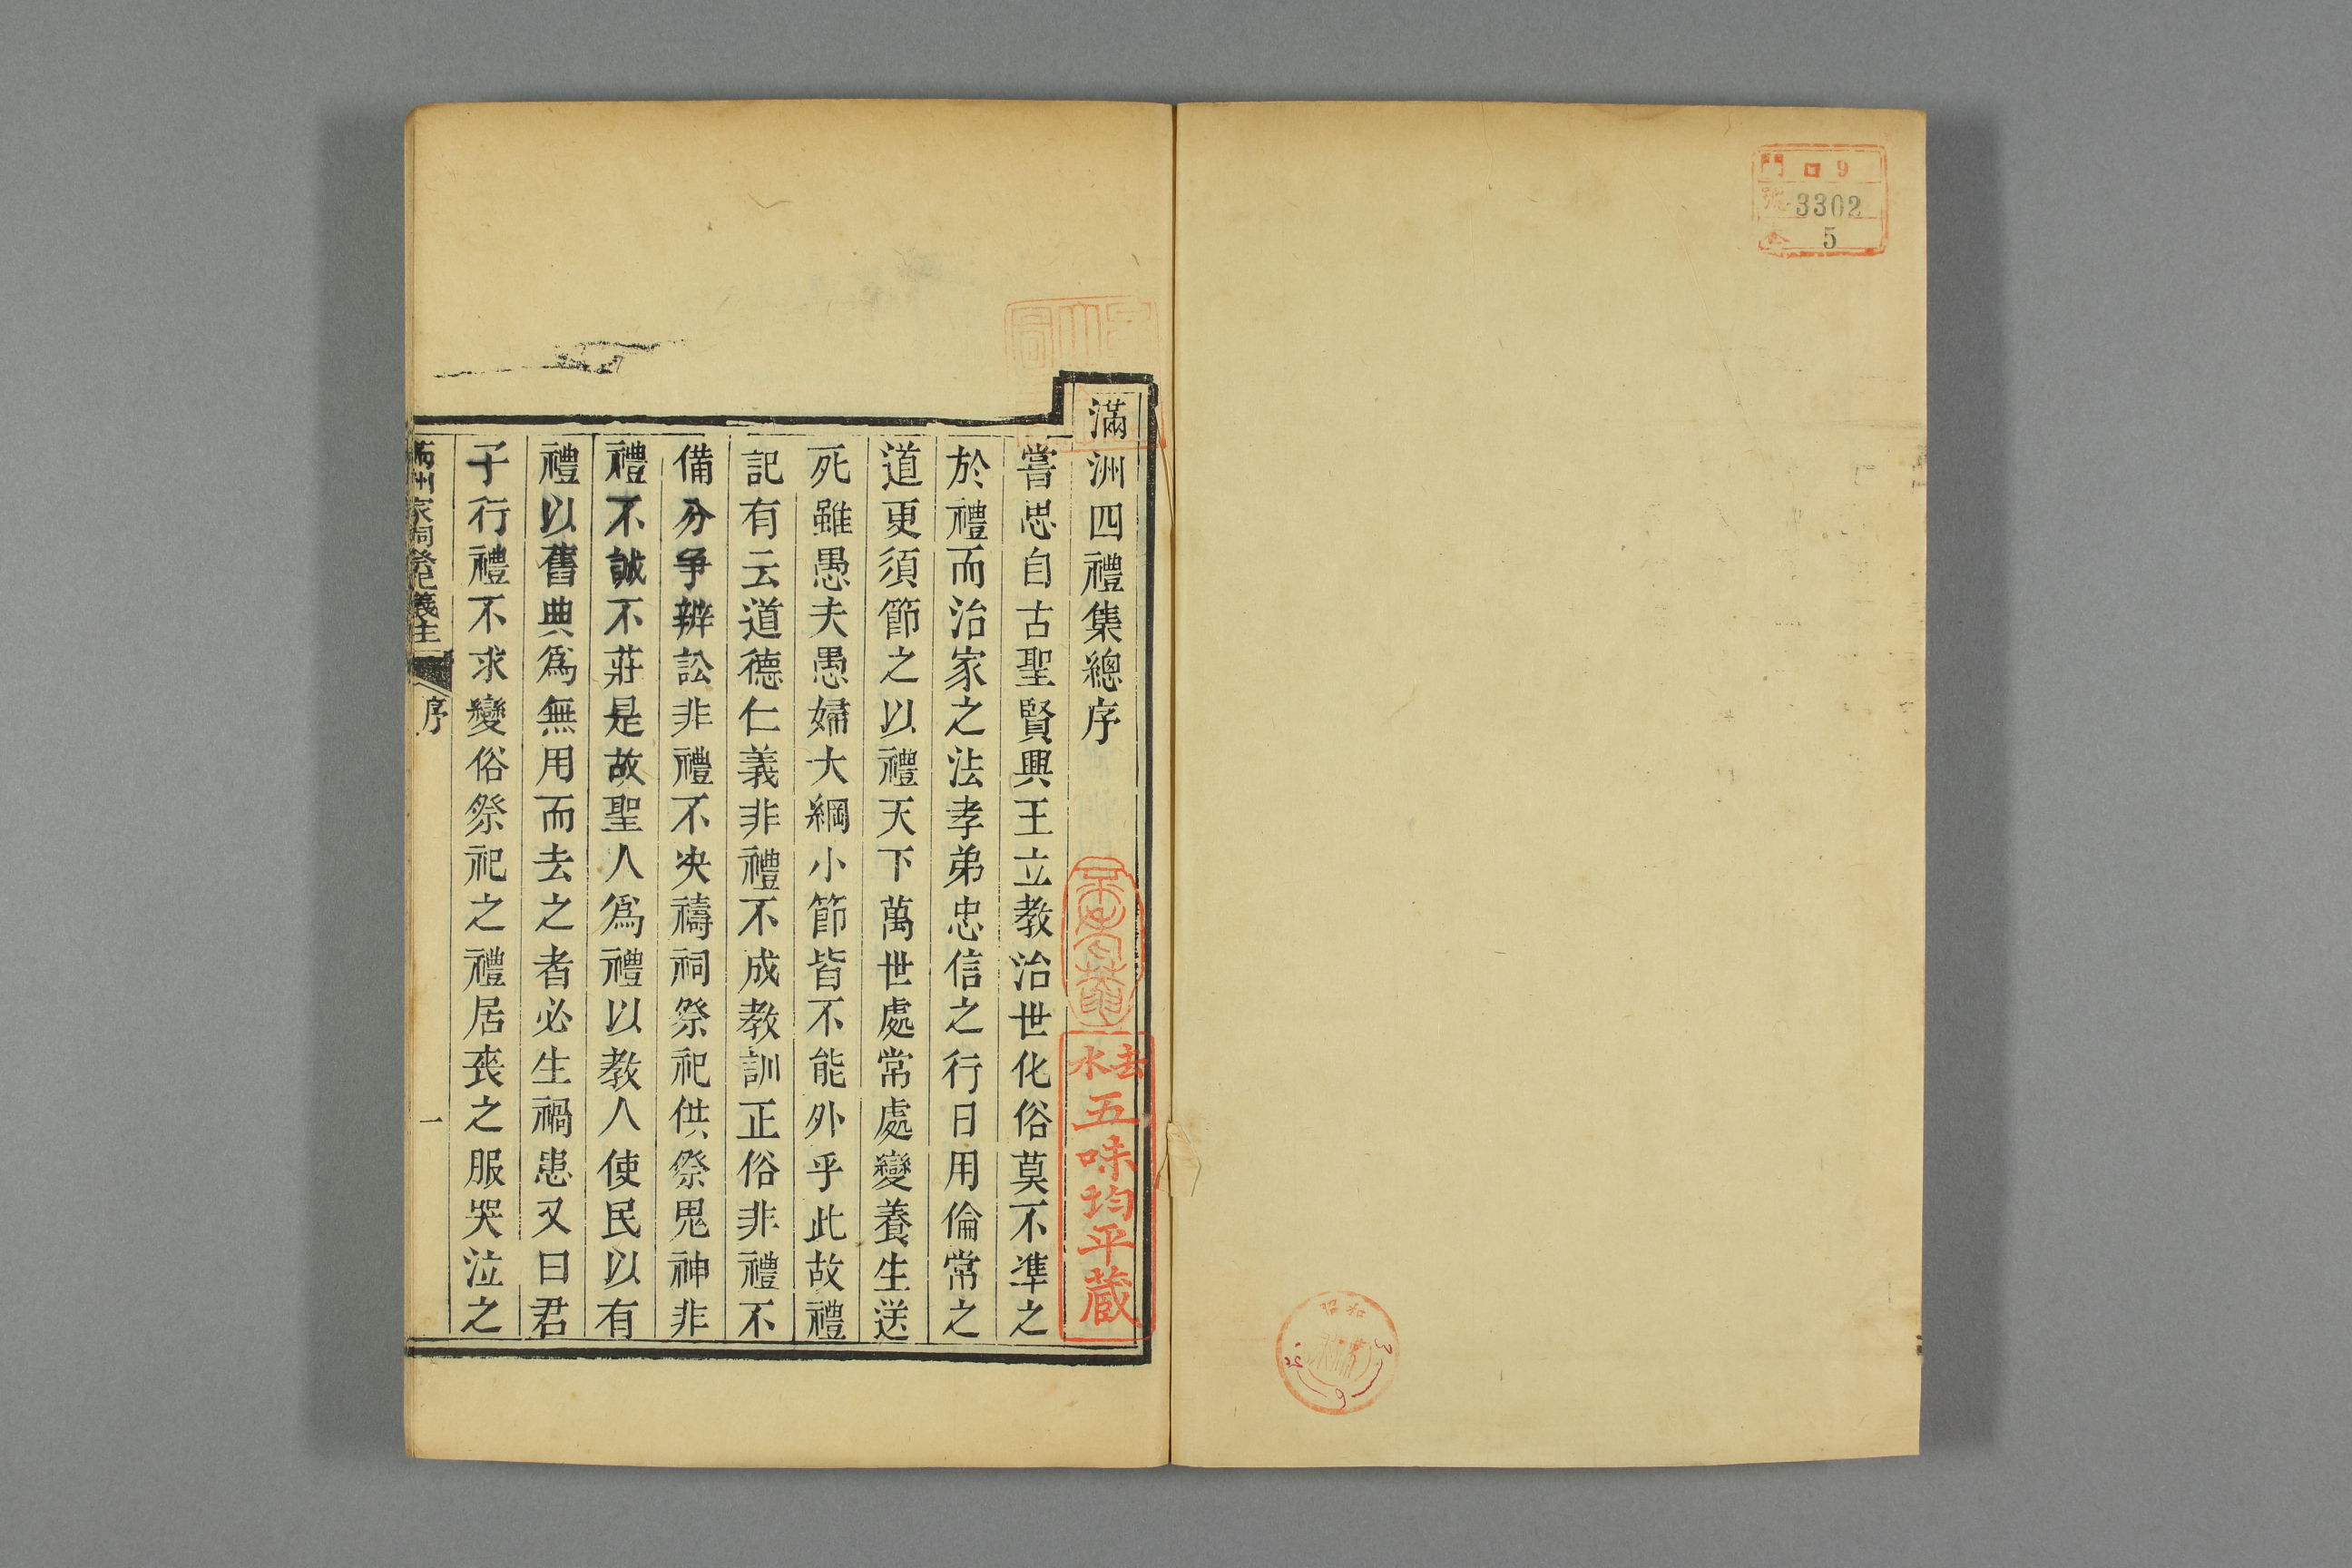 門 ロ 9
號 3302
卷 5
昭和
滿洲四禮集總序
嘗思自古聖賢興王立教治世化俗莫不準之
於禮而治家之法孝弟忠信之行日用倫常之
道更須節之以禮天下萬世處常處變養生送
死雖愚夫愚婦大綱小節皆不能外乎此故禮
記有云道德仁義非禮不成教訓正俗非禮不
備分爭辨訟非禮不决禱祠祭祀供祭鬼神非
禮不誠不莊是故聖人爲禮以教人使民以有
禮以舊典爲無用而去之者必生禍患又曰君
子行禮不求變俗祭祀之禮居喪之服哭泣之
滿洲家祠祭祀儀注 序 一
去水
五味均平藏